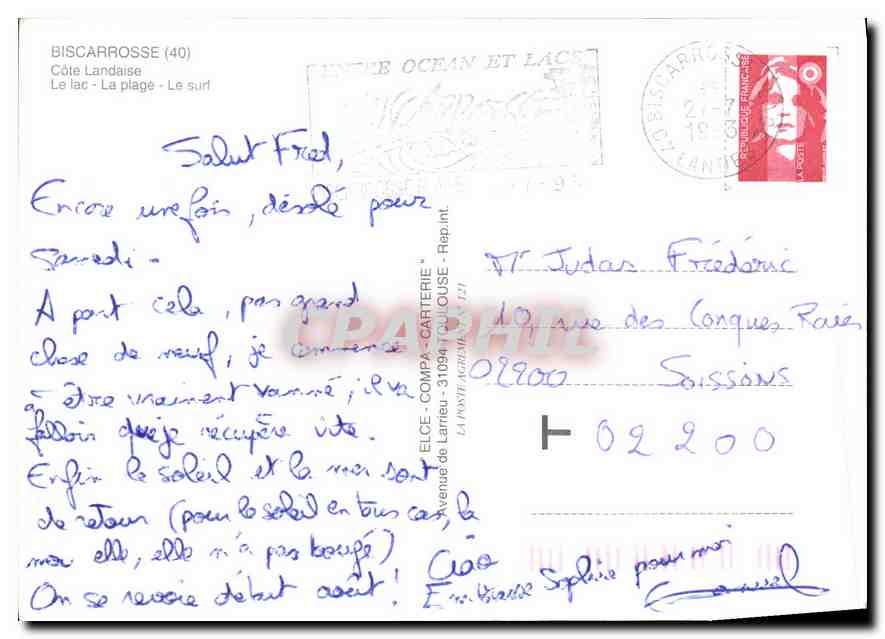 BISCARROSSE (40)
Côte Landaise
Le lac - La plage - Le surf
ENTRE OCEAN ET LACS
40 BISCARROSSE
LANDES
REPUBLIQUE FRANÇAISE
LA POSTE
Salut Fred,
Encore une fois, désolé pour
Samedi.
A part cela, pas grand
chose de neuf, je commence
à être vraiment vanné, il va
falloir que je récupère vite.
Enfin le soleil et la mer sont
de retour (pour le soleil en tous cas, la
mer elle, elle n'a pas bougé)
On se revoie début août !
Ciao
Embrasse Sophie pour moi
" ELCE - COMPA - CARTERIE "
Avenue de Larrieu - 31094 TOULOUSE - Rep. int.
LA POSTE AGREMENT 121
CPAPHIL
Mr Judas Frédéric
10, rue des Conques Raies
02900 Soissons
T 02200